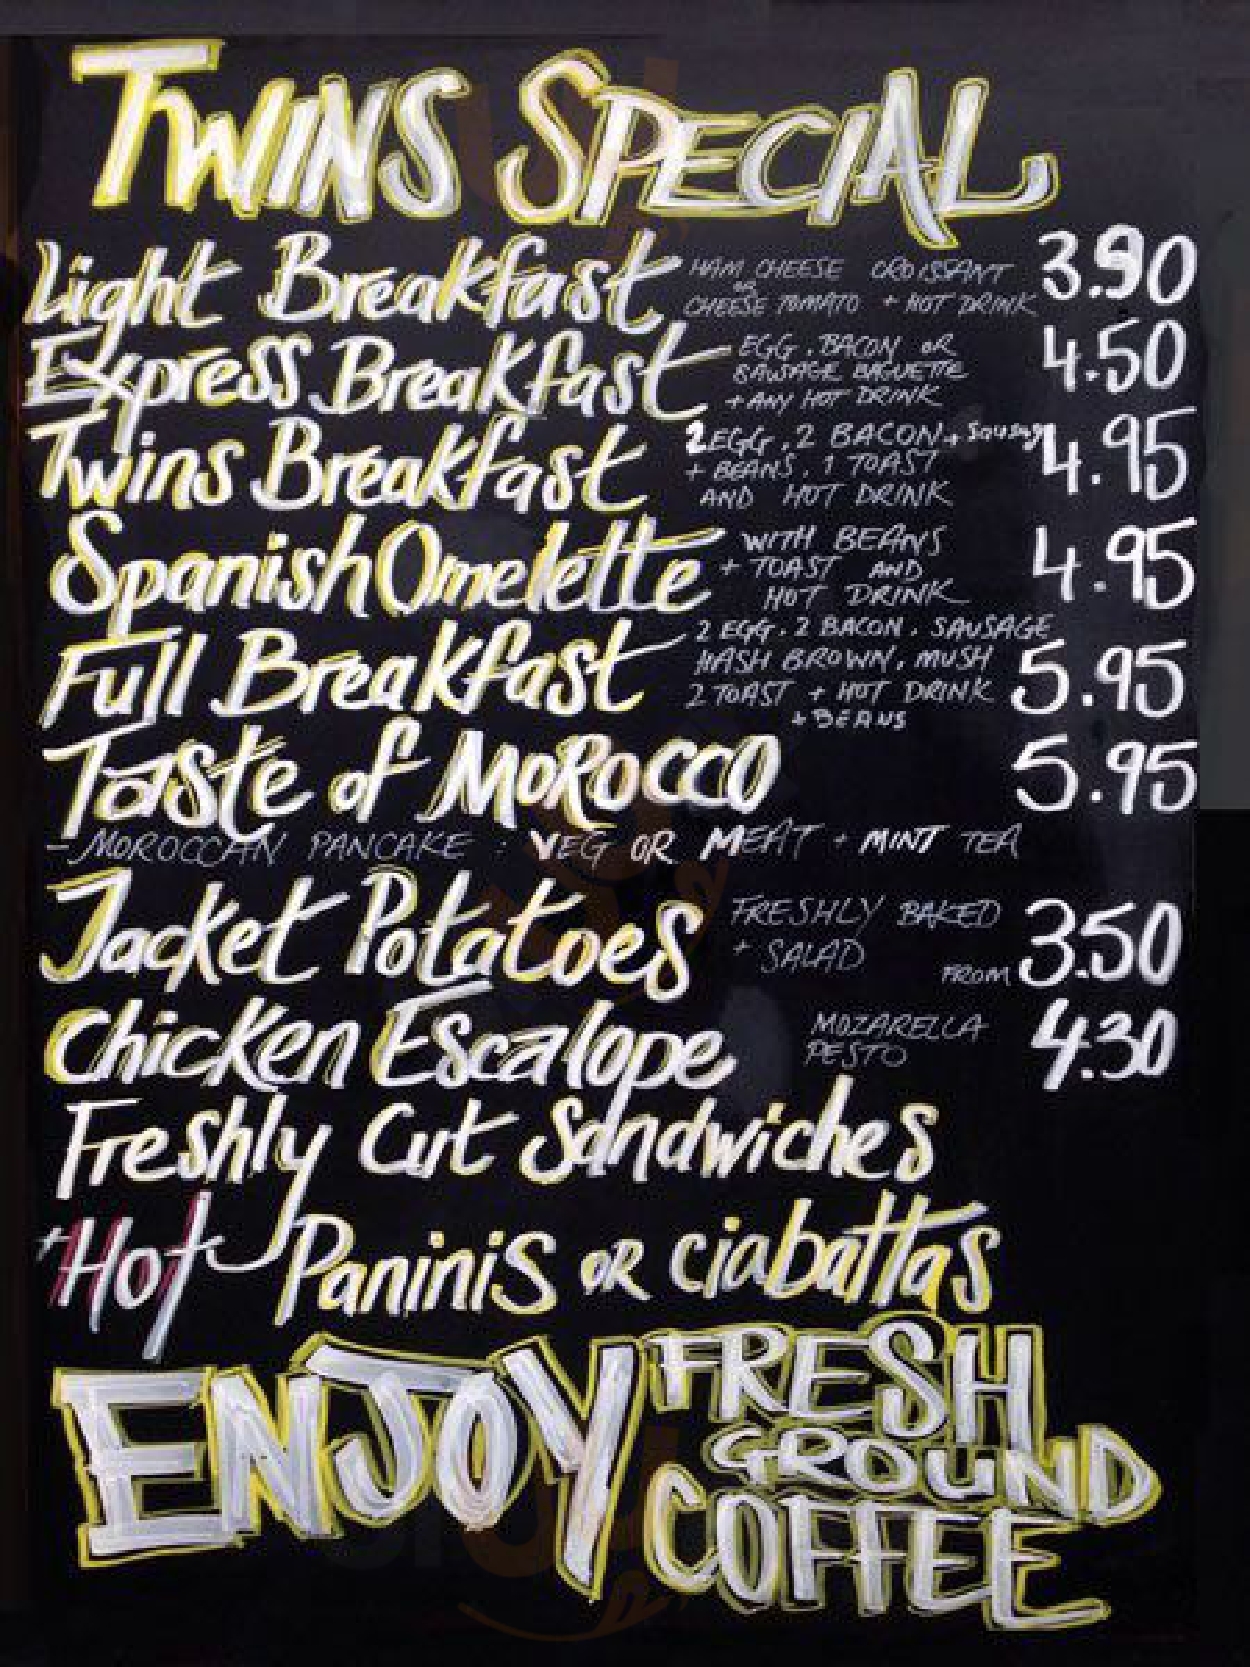 TWINS SPECIAL
Light Breakfast HAM, CHEESE CROISSANT 3.90
OR
CHEESE TOMATO + HOT DRINK
Express Breakfast EGG, BACON OR 4.50
SAUSAGE BAGUETTE
+ ANY HOT DRINK
Twins Breakfast 2 EGG, 2 BACON + Sausage 4.95
+ BEANS, 1 TOAST
AND HOT DRINK
Spanish Omelette WITH BEANS 4.95
+ TOAST AND
HOT DRINK
Full Breakfast 2 EGG, 2 BACON, SAUSAGE
HASH BROWN, MUSH 5.95
2 TOAST + HOT DRINK
+ BEANS
Taste of MOROCCO 5.95
- MOROCCAN PANCAKE : VEG OR MEAT + MINT TEA
Jacket Potatoes FRESHLY BAKED 3.50
+ SALAD
FROM
Chicken Escalope MOZARELLA 4.30
PESTO
Freshly Cut Sandwiches
+ Hot Paninis OR ciabattas
ENJOY FRESH
GROUND
COFFEE